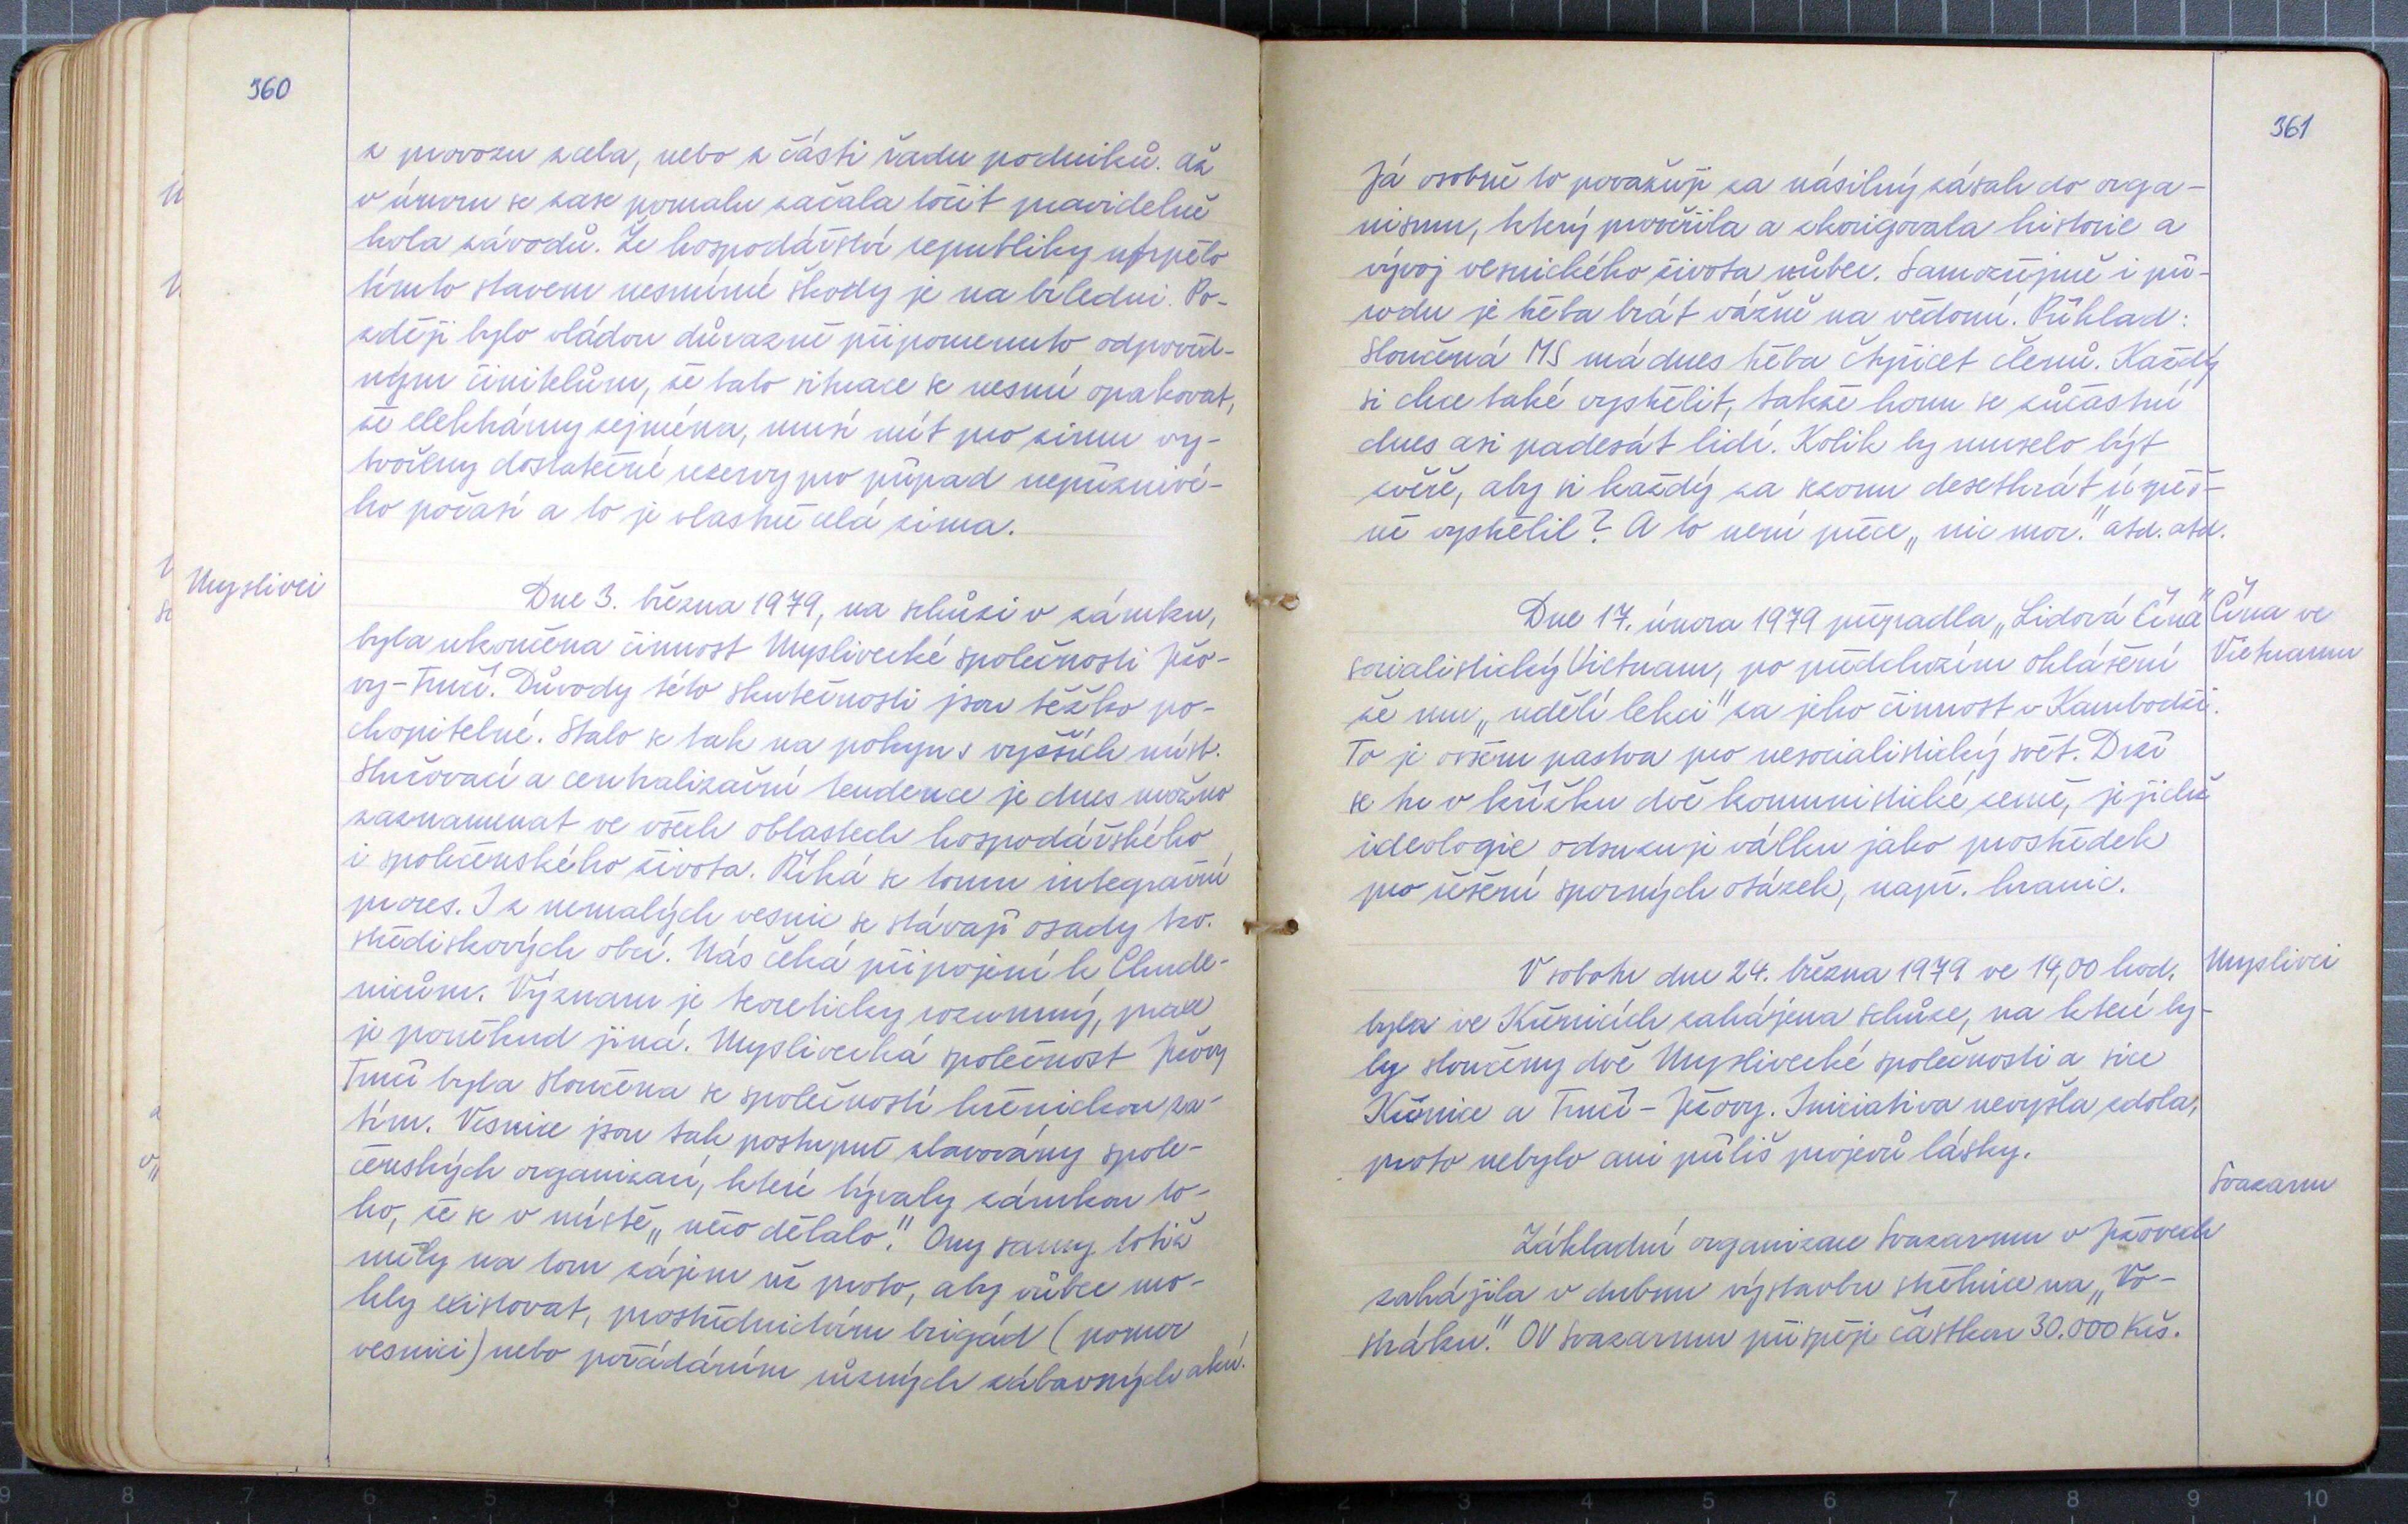 360
z provozu zcela, nebo z části řadu podniků. Až
v únoru se zase pomalu začala točit pravidelně
kola závodů. Že hospodářství republiky utrpělo
tímto stavem nesmírné škody je na bíledni. Po-
zději bylo vládou důrazně připomenuto odpověd-
ným činitelům, že tato situace se nesmí opakovat,
že elektrárny zejména, musí mít pro zimu vy-
tvořeny dostatečné rezervy pro případ nepříznivé-
ho počasí a to je vlastně celá zima.
Myslivci
Dne 3. března 1979, na schůzi v zámku,
byla ukončena činnost Myslivecké společnosti Ježo-
vy-Trnčí. Důvody této skutečnosti jsou těžko po-
chopitelné. Stalo se tak na pokyn s vyšších míst.
Slučovací a centralizační tendence je dnes možno
zaznamenat ve všech oblastech hospodářského
i společenského života. Říká se tomu integrační
proces. I z nemalých vesnic se stávají osady tzv.
střediskových obcí. Nás čeká připojení k Chude-
nicům. Význam je teoreticky rozumný, praxe
je poněkud jiná. Myslivecká společnost Ježovy
Trnčí byla sloučena se společností křenickou za-
tím. Vesnice jsou tak postupně zbavovány spole-
čenských organizací, které bývaly zárukou to-
ho, že se v místě „něco dělalo." Ony samy totiž
měly na tom zájem už proto, aby vůbec mo-
hly existovat, prostřednictvím brigád (pomoc
vesnici) nebo pořádáním různých zábavných akcí.
361
Já osobně to považuji za násilný zásah do orga-
nismu, který prověřila a zkorigovala historie a
vývoj vesnického života vůbec. Samozřejmě i pří-
rodu je třeba brát vážně na vědomí. Příklad:
Sloučená MS má dnes třeba čtyřicet členů. Každý
si chce také vystřelit, takže honu se zůčastní
dnes asi padesát lidí. Kolik by muselo být
zvěře, aby si každý za sezonu desetkrát úspěš-
ně vystřelil? A to není přece „nic moc." atd. atd.
Čína ve
Vietnamu
Dne 17. února 1979 přepadla „Lidová Čína"
socialistický Vietnam, po předchozím ohlášení
že mu „udělí lekci" za jeho činnost v Kambodži.
To je ovšem pastva pro nesocialistický svět. Drží
se tu v křížku dvě komunistické země, jejichž
ideologie odsuzuje válku jako prostředek
pro řešení sporných otázek, např. hranic.
Myslivci
V sobotu dne 24. března 1979 ve 14,00 hod.
byla ve Křenicích zahájena schůze, na které by-
ly sloučeny dvě Myslivecké společnosti a sice
Křenice a Trnčí - Ježovy. Iniciativa nevyšla zdola,
proto nebylo ani příliš projevů lásky.
Svazarm
Základní organizace Svazarmu v Ježovech
zahájila v dubnu výstavbu střelnice na „Vo-
stráku." OV Svazarmu přispěje částkou 30.000 Kčs.